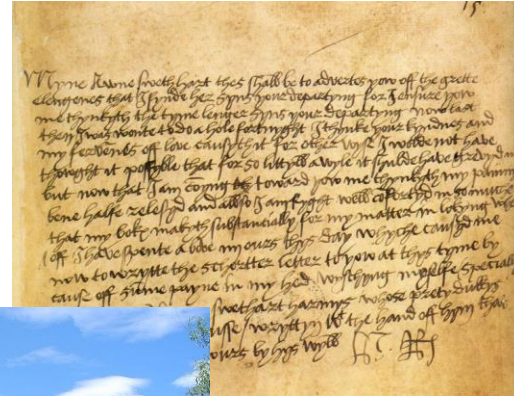 15
Myne awne swethart thes shall be to advertes yow off the grette
elengenes that I fynde her syns your departyng for I ensure yow
me thynkyth the tyme lenger syns your departyng now last
then I was wonte to do a hole fortnyght I thynke your kyndnes and
my fervents off love causyth it for other wyse I wolde not have
thowght it possyble that for so littyll a wyle it shulde have grevyd
but now that I am comyng toward yow me thynkyth my paynnys
bene halfe relesyd and allso I am ryght well comfortyd in so muche
that my boke makyth substancially for my matter in
off I have spente a bove ours thys day whyche causyd me
now to wrytte the schortter letter to yow at thys tyme by
cause off summe payne in my hed wisshyng my selfe specially
swethart harmys whose prety dukkys
wryttyn with the hand off hym that
yours by hys wyll